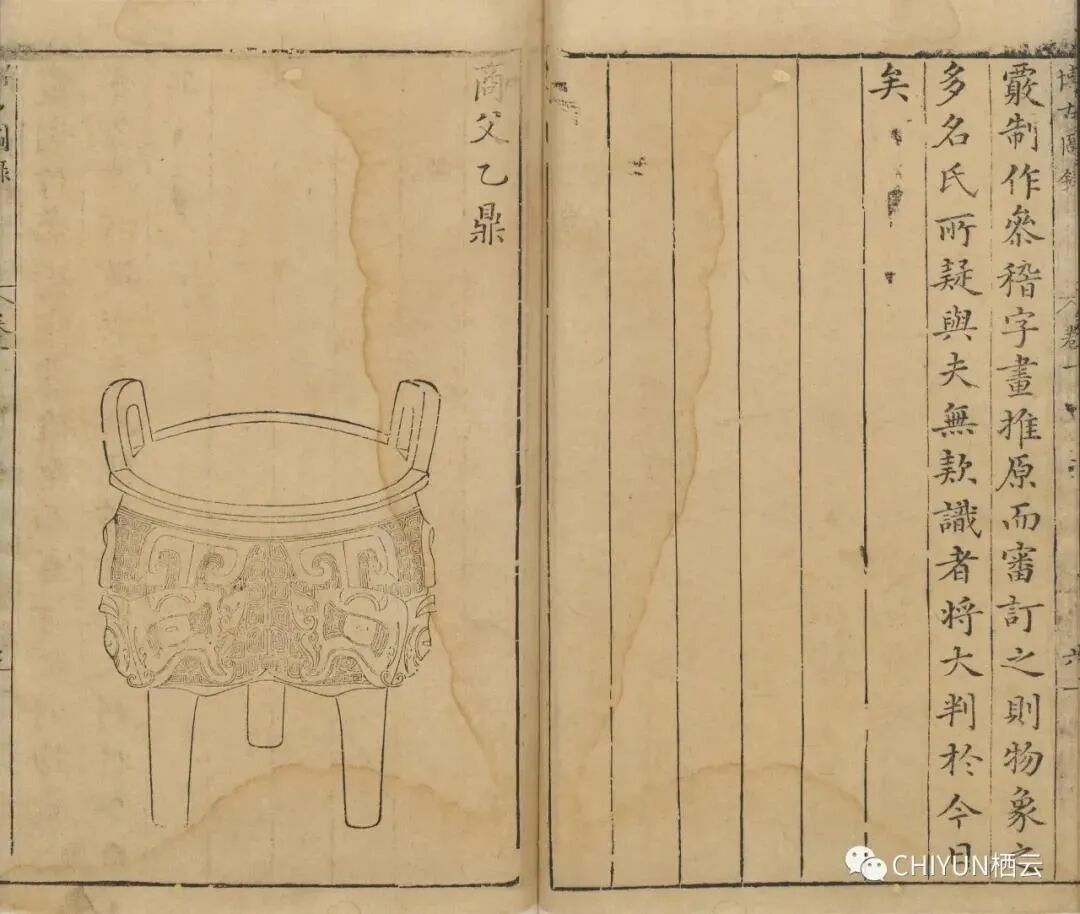 覈制作參稽字畫推原而審訂之則物象之
多名氏所疑與夫無款識者将大判於今日
矣
商父乙鼎
博古圖錄
卷一
六
CHIYUN栖云